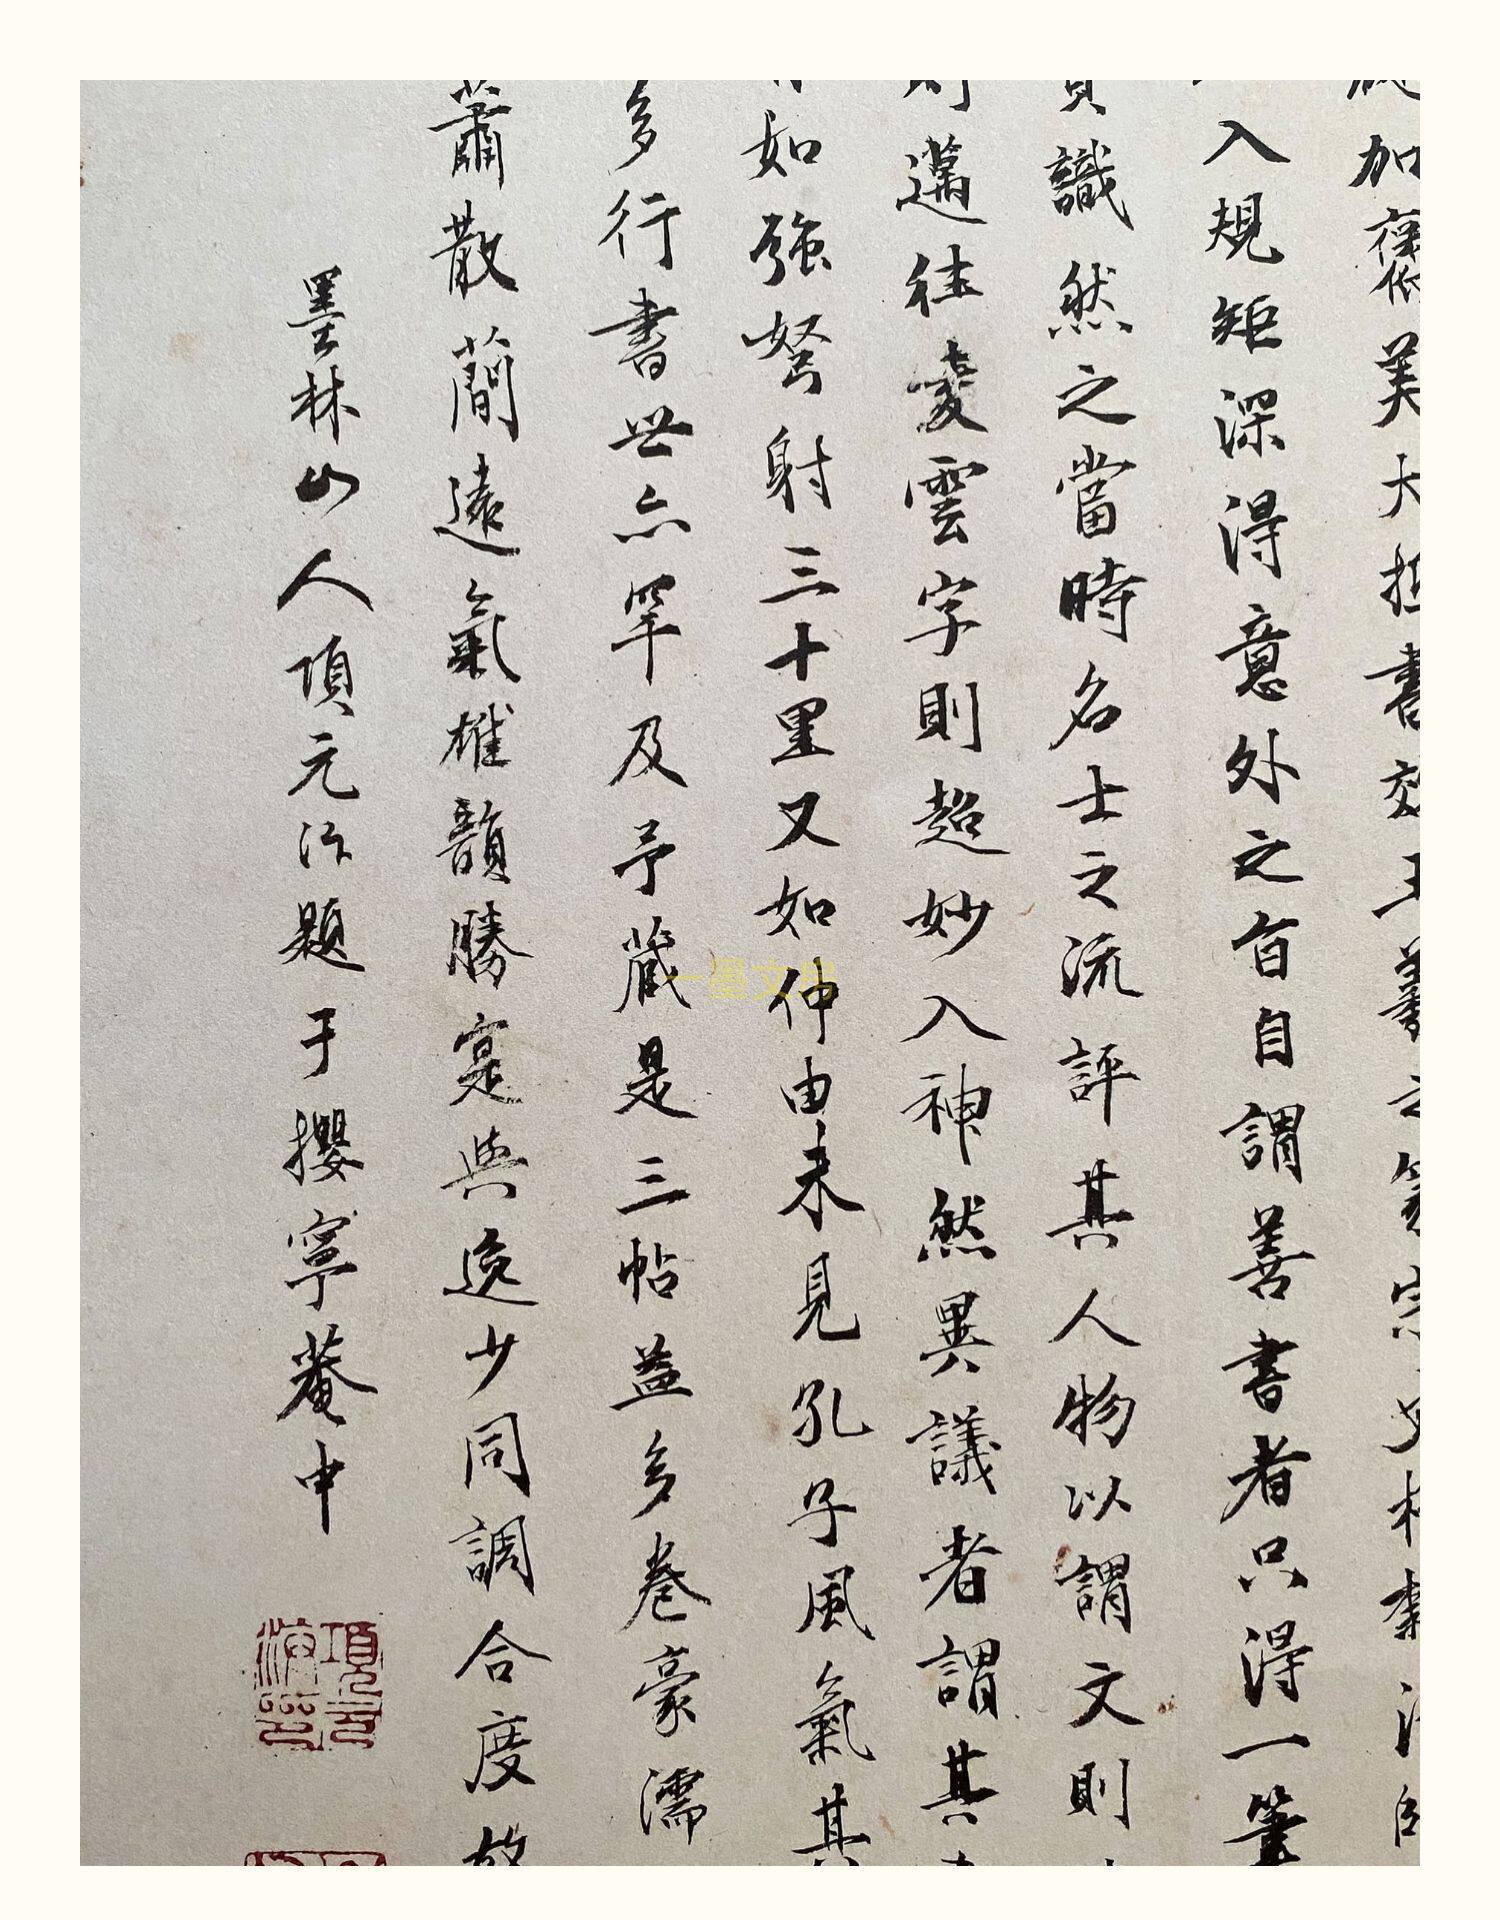 加襃低美大抵書效王羲之篆宗史籀隸法師
入規矩深得意外之旨自謂善書者只得一筆
識然之當時名士之流評其人物以謂文則
則邁往凌雲字則超妙入神然異議者謂其
如強弩射三十里又如仲由未見孔子風氣其
多行書世亦罕及予藏是三帖益多卷豪濡
蕭散簡遠氣雄韻勝寔與逸少同調合度故
墨林山人項元汴題于攖寧菴中
項元汴印
一墨文房